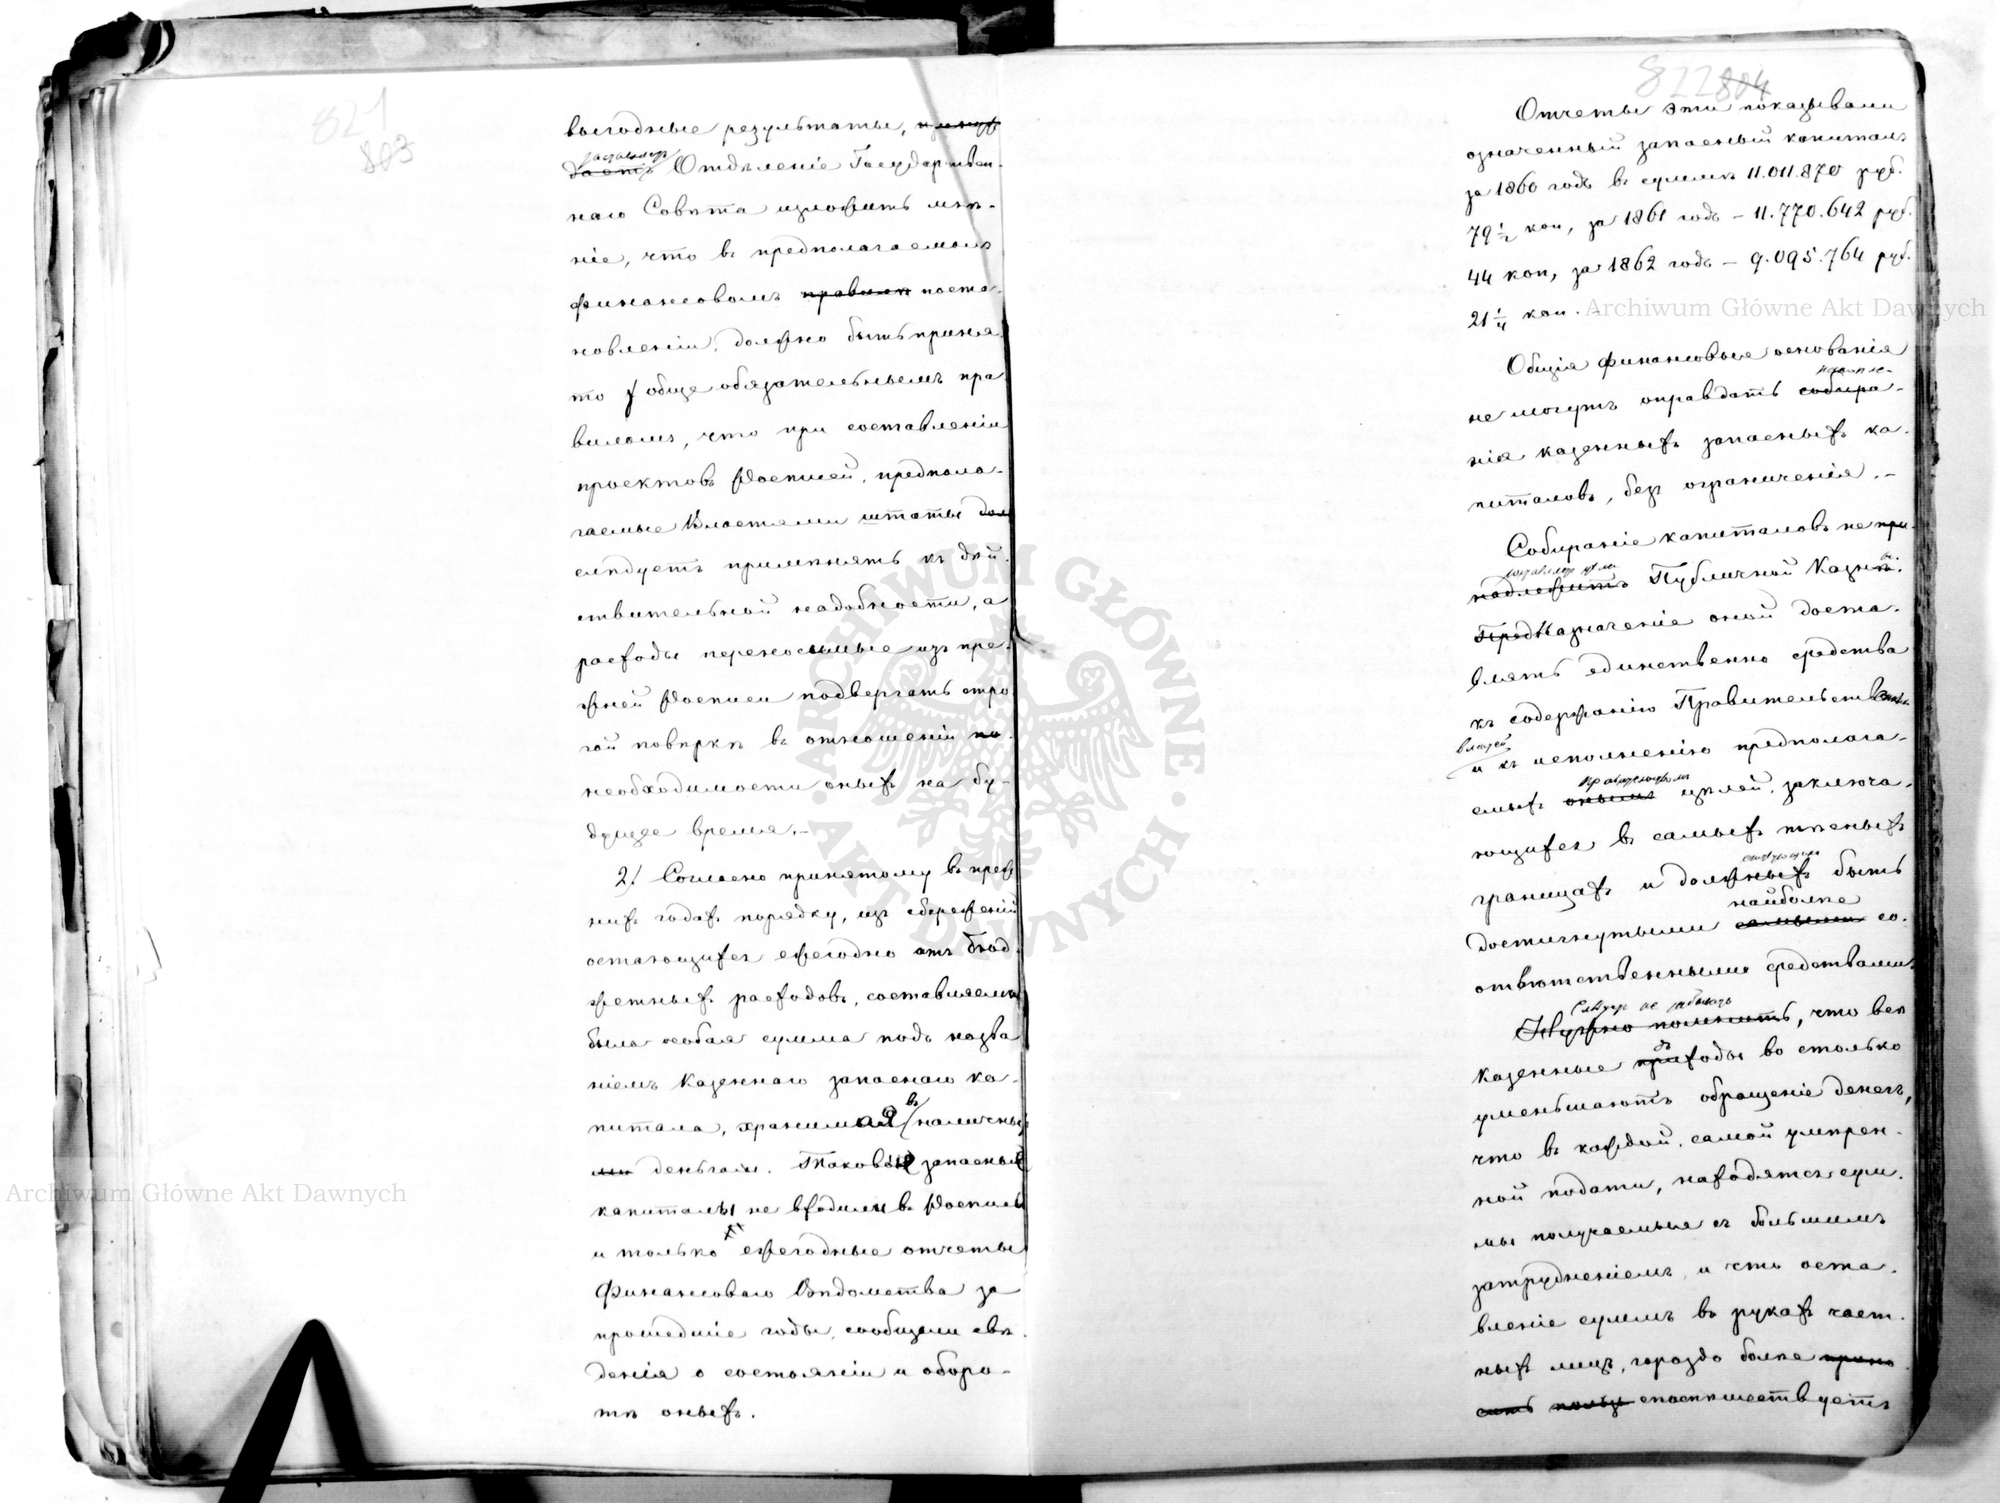 821
803
выгодные результаты,
Отдѣленіе Государствен-
наго Совѣта изложитъ мнѣ-
ніе, что въ предполагаемомъ
финансовомъ правилѣ поста-
новленіи, должно быть приня-
то обще обязательнымъ пра-
виломъ, что при составленіи
проектовъ Росписей, предпола-
гаемые Властями штаты
слѣдуетъ примѣнять къ дѣй-
ствительной надобности, а
расходы переносимые изъ пре-
жней Росписи подвергать стро-
гой повѣркѣ въ отношеніи по
необходимости оныхъ на бу-
дущее время.–
2/ Согласно принятому въ преж-
нихъ годахъ порядку, изъ сбереженій
остающихся ежегодно отъ Бюд-
жетныхъ расходовъ, составляема
была особая сумма подъ назва-
ніемъ Казеннаго запаснаго ка-
питала, хранимая въ наличны-
ми деньгами. Таковые запасные
капиталы не входили въ Роспись
и только ежегодные отчеты
Финансоваго Вѣдомства за
прошедшіе годы, сообщали свѣ-
денія о состояніи и оборо-
тѣ оныхъ.
822 804
Отчеты эти показывали
означенный запасный капиталъ
за 1860 годъ въ суммѣ 11.011.870 руб.
79 ½ коп, за 1861 годъ – 11.770.642 руб.
44 коп, за 1862 годъ – 9.095.764 руб.
21 ¼ коп.
Общія финансовыя основанія
накопле-
не могутъ оправдать собира-
нія казенныхъ запасныхъ ка-
питаловъ, безъ ограниченія.–
Собираніе капиталовъ не при-
надлежитъ Публичной Казнѣ.
Предназначеніе оной доста-
влять единственно средства
къ содержанію Правительственныхъ
властей
и къ исполненію предпола-
гаемыхъ оными цѣлей, заключа-
ющихся въ самыхъ тѣсныхъ
границахъ и долженыхъ быть
наиболѣе
достигнутыми самыми со-
отвѣтственными средствами.
Слѣдуетъ не забывать
Нужно помнить, что всѣ
казенные приходы во столько
уменьшаютъ обращеніе денегъ,
что въ каждой, самой умѣрен-
ной подати, находятся сум-
мы получаемыя съ большимъ
затрудненіемъ, и что оста-
вленіе суммъ въ рукахъ част-
ныхъ лицъ, гораздо болѣе прино-
ситъ пользы споспѣшествуетъ
Archiwum Główne Akt Dawnych
Archiwum Główne Akt Dawnych
ARCHIWUM GŁÓWNE · AKT DAWNYCH ·